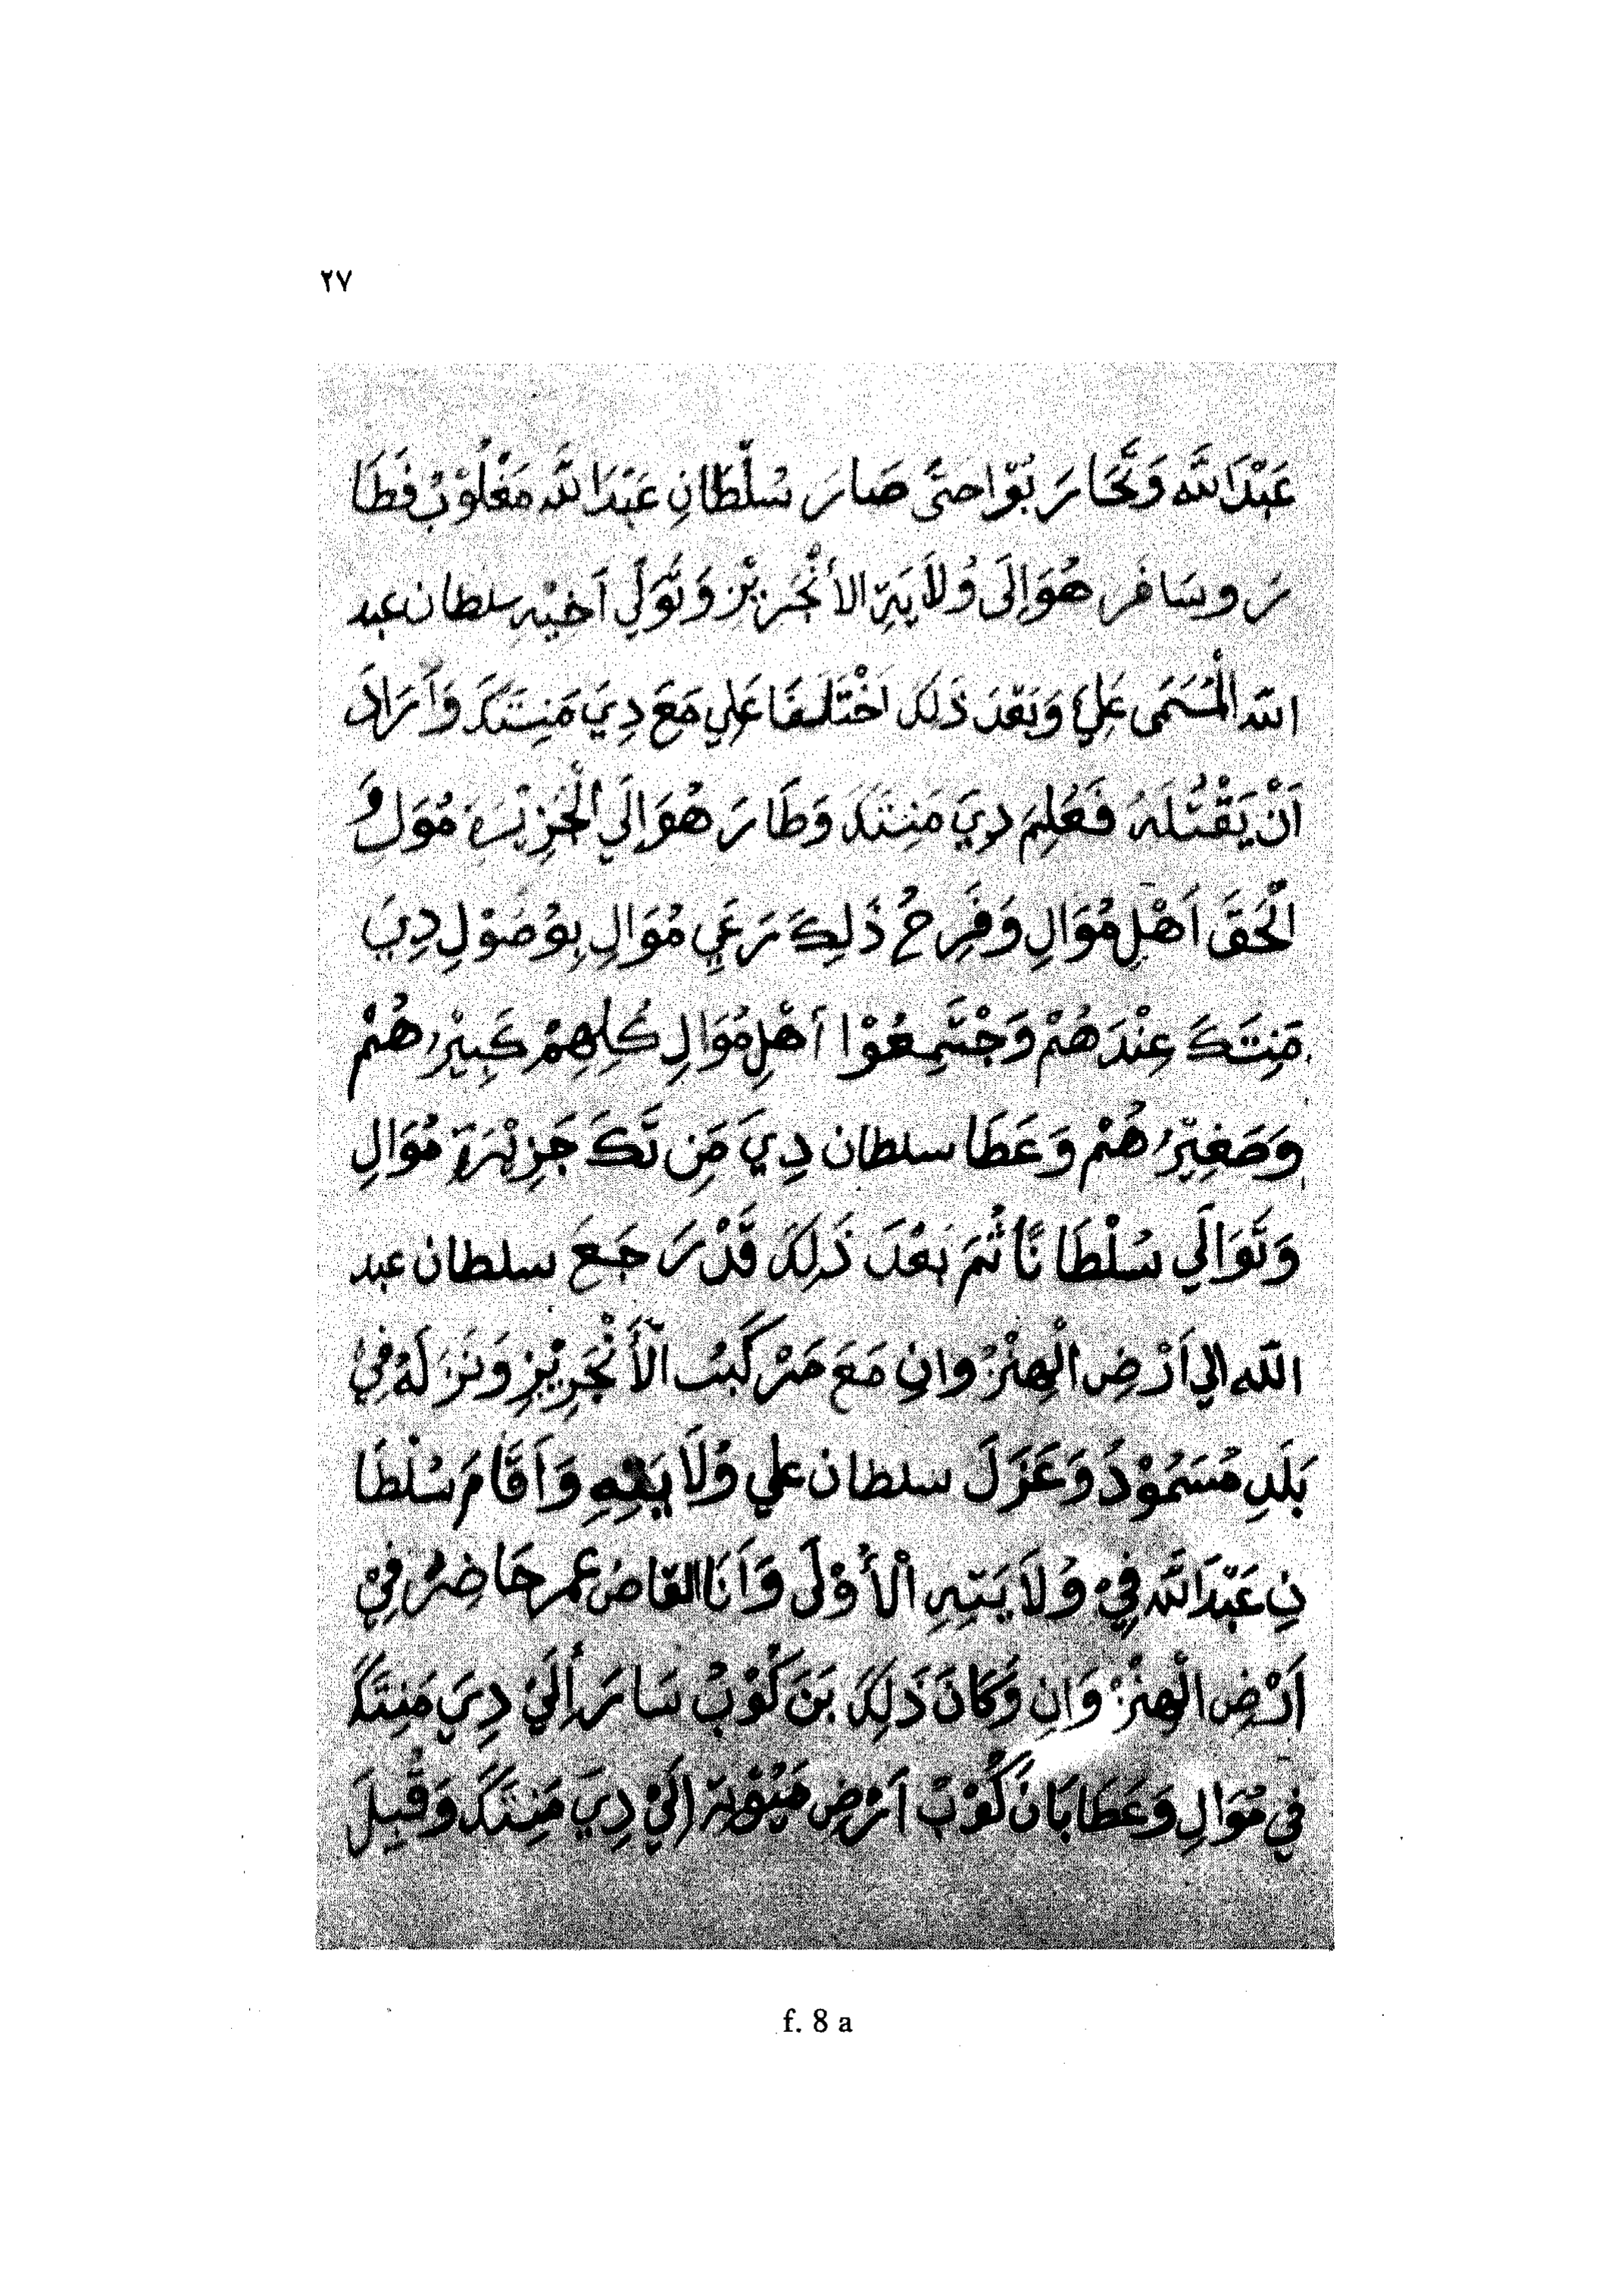 ٢٧
عَبْدَاللَّه وَتَّحَارَبُوْا حَتَّى صَارَ سُلْطَانِ عَبْدَاللَّه مَغْلُوْبُ فَطَا
رَ وسَافَر هُوَ اِلَى وُلَايَةِ الاَنْجَرِيْزِ وَتَّوَلَّي اَخِيْهِ سلطان عبد
الله الْمُسَمَى عَلِيْ وَبَعْدَ ذَلِكَ اخْتَلَفَا عَلِي مَعَ دِيَ مَنِتَكَ وَاَرَادَ
اَنْ يَقْتُلَهُ فَعَلِمَ دِيَ مَنِتَكَ وَطَارَ هُوَ اِلَي الْجَزِيْرَةِ مُوَلِ وَ
الْحَقَ اَهْلِ مُوَالِ وَفَرِحُ ذَلِكَ رَعَيِ مُوَالِ بِوُصُوْلِ دِيَ
مَنِتَكَ عِنْدَهُمْ وَجْتَمِعُوْا اَهْلِ مُوَالِ كُلِهِمْ كَبِيْرُهُمْ
وَصَغِيْرُهُمْ وَعَطَا سلطان دِيَ مَنِ تَّكَ جَزِيْرَةِ مُوَالِ
وَتَّوَالَي سُلْطَانًا ثُمَ بَعْدَ ذَلِكَ قَدْ رَجَعَ سلطان عبد
الله الي اَرْضِ الْهِنْزُوانِ مَعَ مَرْكَبُ الْأَنْجَرِيْزِ وَنَزَلَهُ فِيْ
بَلَدِ مُسَمُوْدُ وَعَزَلَ سلطان علي وُلَايَتِهِ وَاَقَامَ سُلْطَا
نِ عَبْدَاللَّه فِيْ وُلَايَتِهِ الْأُوْلَى وَاَنَا القاض عمر حَاضِرُ فِيْ
اَرْضِ الْهِنْزُوَانِ وَكَانَ ذَلِكَ بَنَ كُوْبُ سَارَ اِلَيْ دِيَ مَنِتَكَ
فِي مُوَالِ وَعَطَا بَانَ كُوْبُ اَرْضِ اِلَيْ دِيَ مَنِتَكَ وَقُبِلَ
f. 8 a